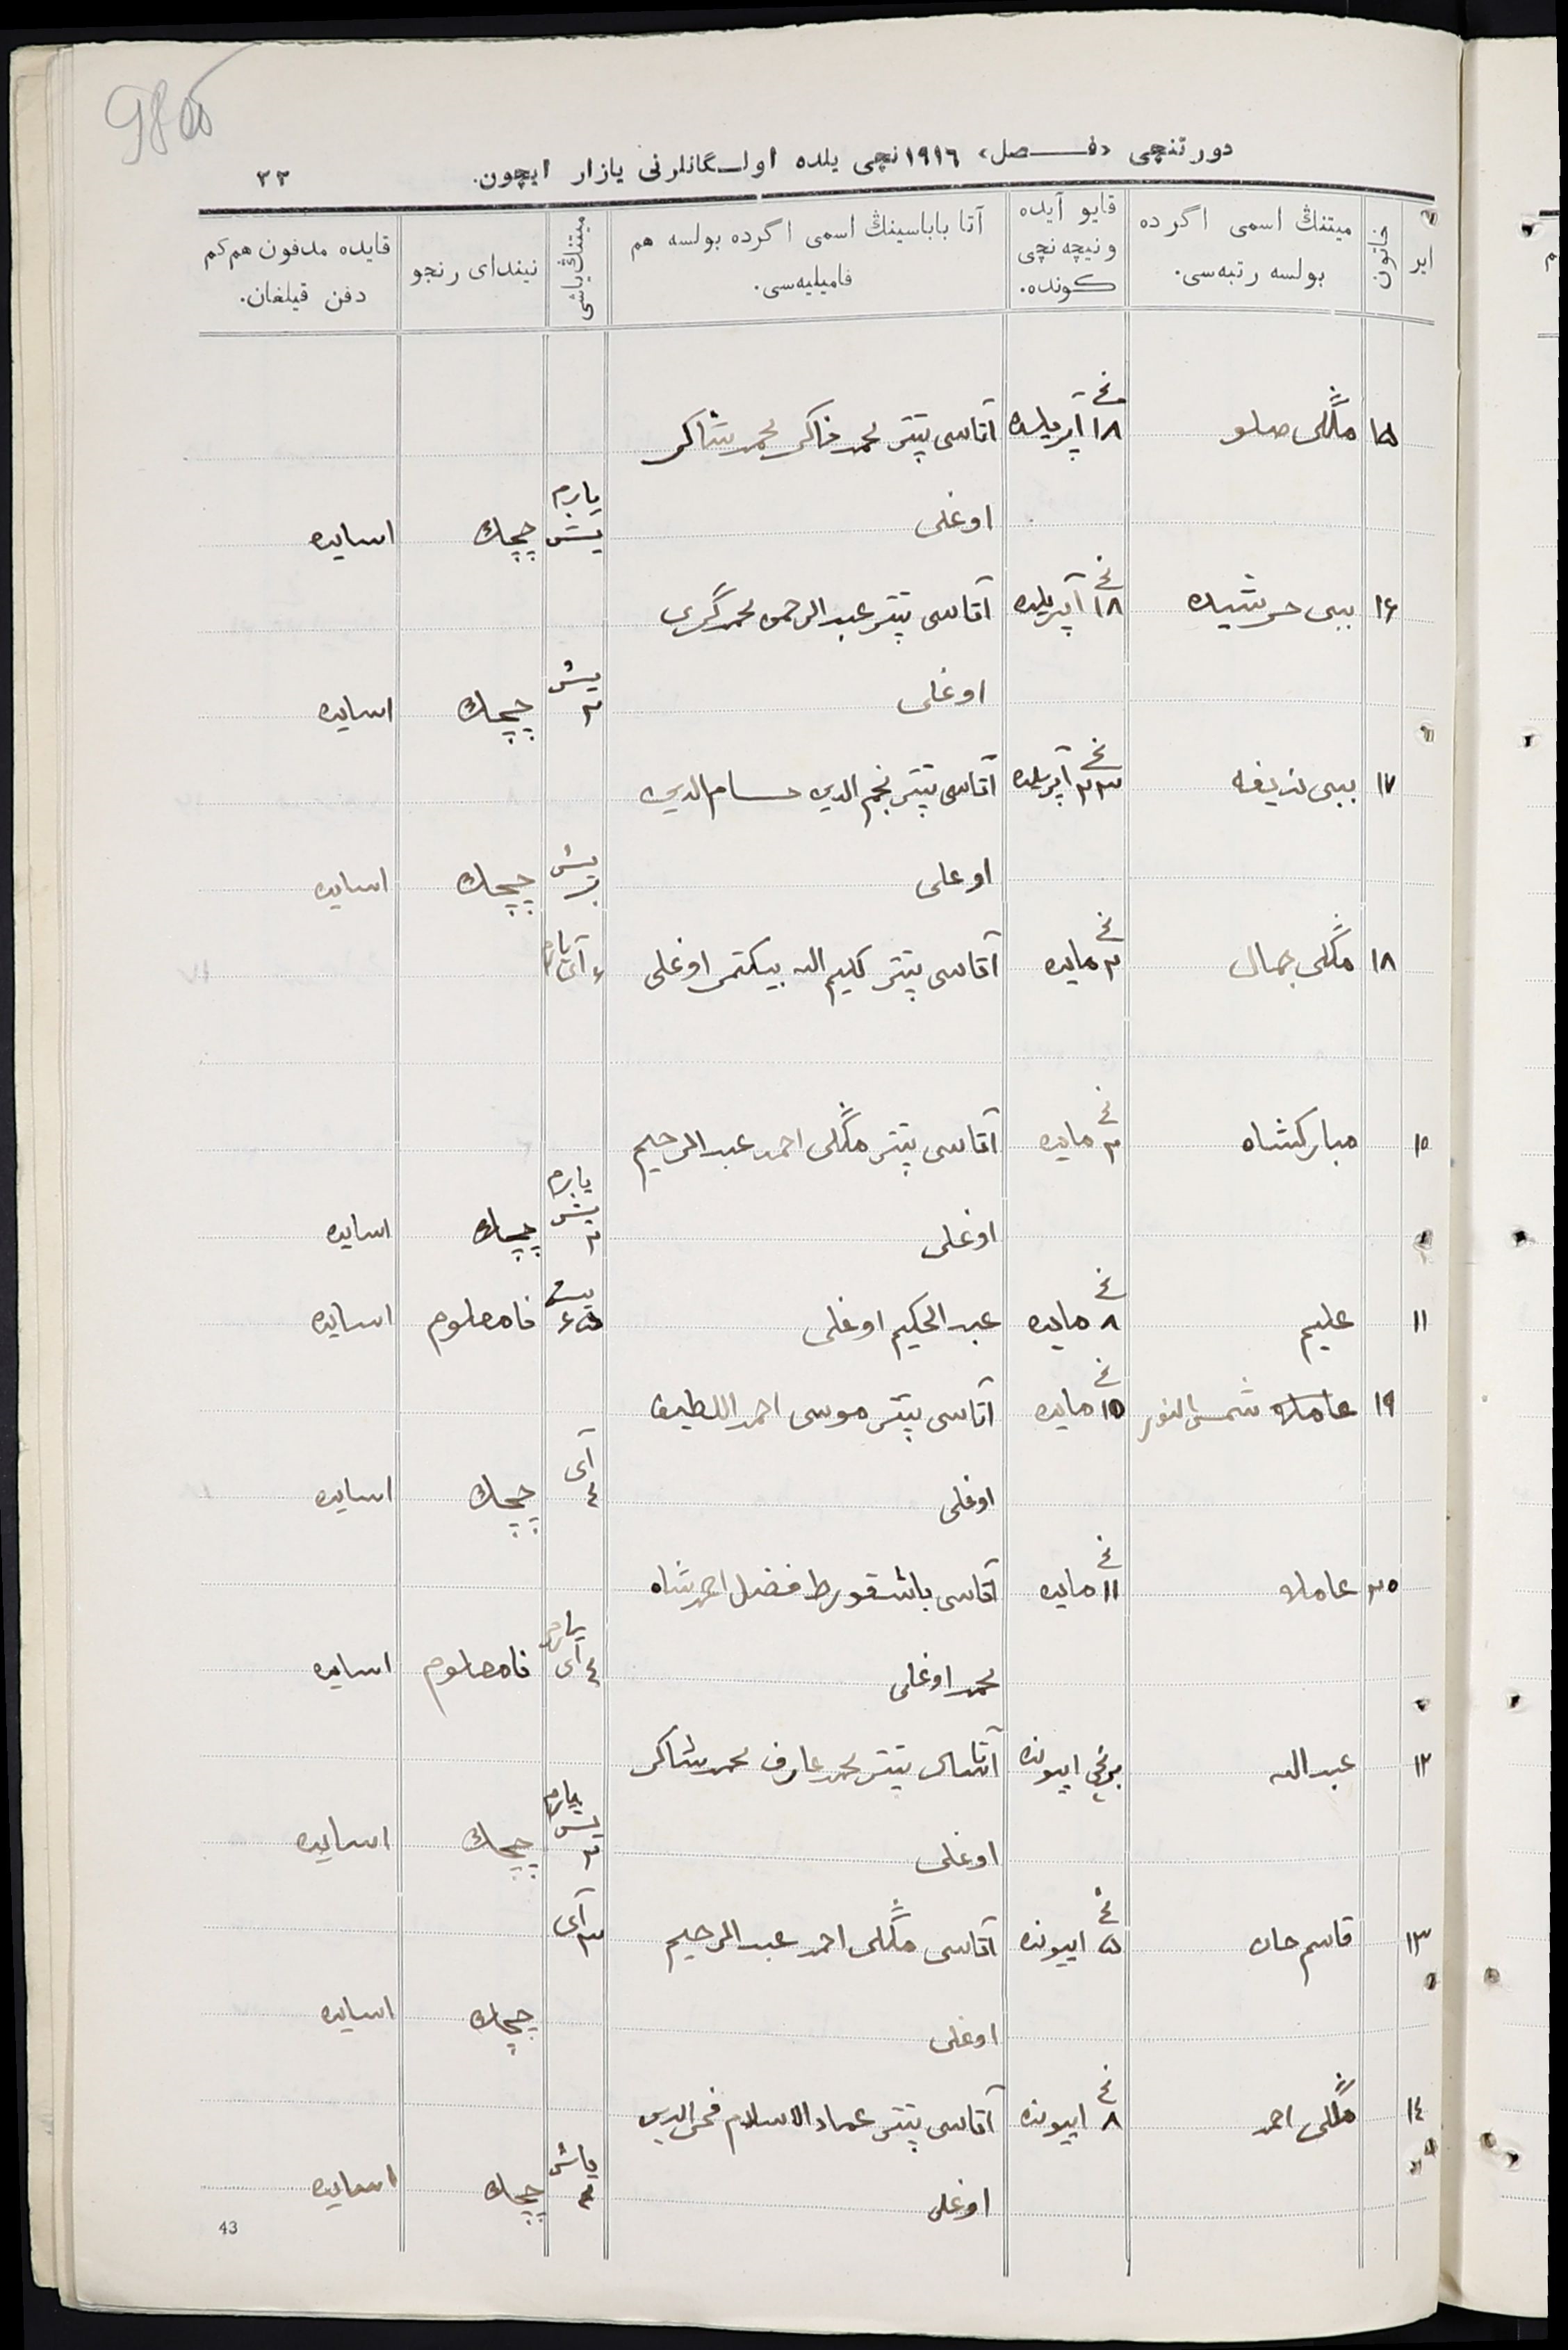 دورتنچی «فـــصل» ١٩١٦نچی یلده اولـگانلرنی یازار ایچون. ٢٣
ایر
خاتون
میتنڭ اسمی اگرده بولسه رتبه‌سی.
قایو آیده ونیچه نچی کونده.
آتا باباسینڭ اسمی اگرده بولسه هم فامیلیه‌سی.
میتنڭ یاشی
نیندای رنجو
قایده مدفون هم کم دفن قیلغان.
١٥ مڭلی صلو ١٨ نچی آپریلده آتاسی تپتر محمد ذاکر محمد شاکر
اوغلی یارم یش چچك اسایده
١٦ بیبی حرشیده ١٨ نچی آپریلده آتاسی تپتر عبد الرحمن محمد گری
اوغلی یش ٢ چچك اسایده
١٧ بیبی نزیفه ٢٣ نچی آپریلده آتاسی تپتر نجم الدین حسام الدین
اوغلی یش بر چچك اسایده
١٨ مڭلی جمال ٢ نچی مایده آتاسی تپتر کلیم الله بیکتمر اوغلی ٦ آی یارم
١٠ مبارکشاه ٢ نچی مایده آتاسی تپتر مڭلی احمد عبد الرحیم
اوغلی یارم یش ٢ چچك اسایده
١١ علیم ٨ نچی مایده عبد الحکیم اوغلی یش ٦٥ نامعلوم اسایده
١٩ عامله شمس النور ١٥ نچی مایده آتاسی تپتر موسی احمد اللطیف
اوغلی آی ٤ چچك اسایده
٢٠ عامله ١١ نچی مایده آتاسی باشقورط فضل احمدشاه
محمد اوغلی یارم ٤ آی نامعلوم اسایده
١٢ عبد الله برنچی اییونده آتاسی تپتر محمد عارف محمد شاکر
اوغلی یارم یش ٢ چچك اسایده
١٣ قاسم جان ٥ نچی اییونده آتاسی مڭلی احمد عبد الرحیم آی ٣
اوغلی چچك اسایده
١٤ مڭلی احمد ٨ نچی اییونده آتاسی تپتر عماد الاسلام فخر الدین
اوغلی یاش ٢ چچك اسایده
43